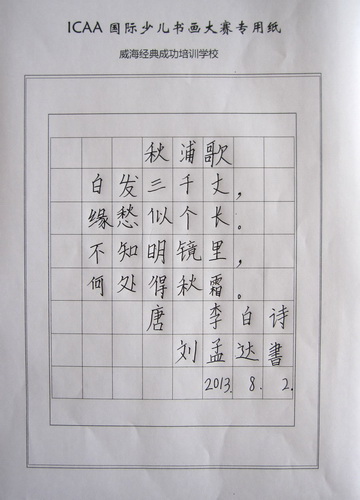 ICAA 国际少儿书画大赛专用纸
威海经典成功培训学校
秋浦歌
白发三千丈，
缘愁似个长。
不知明镜里，
何处得秋霜。
唐 李白诗
刘孟达書
2013. 8. 2.